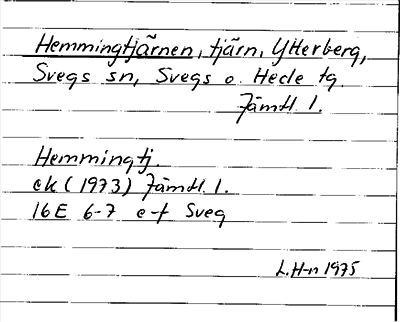 Hemmingtjärnen, tjärn, Ytterberg,
Svegs sn, Svegs o. Hede tg.
Jämtl. l.
Hemmingtj.
ek (1973) Jämtl. l.
16E 6-7 e-f Sveg
L.H-n 1975